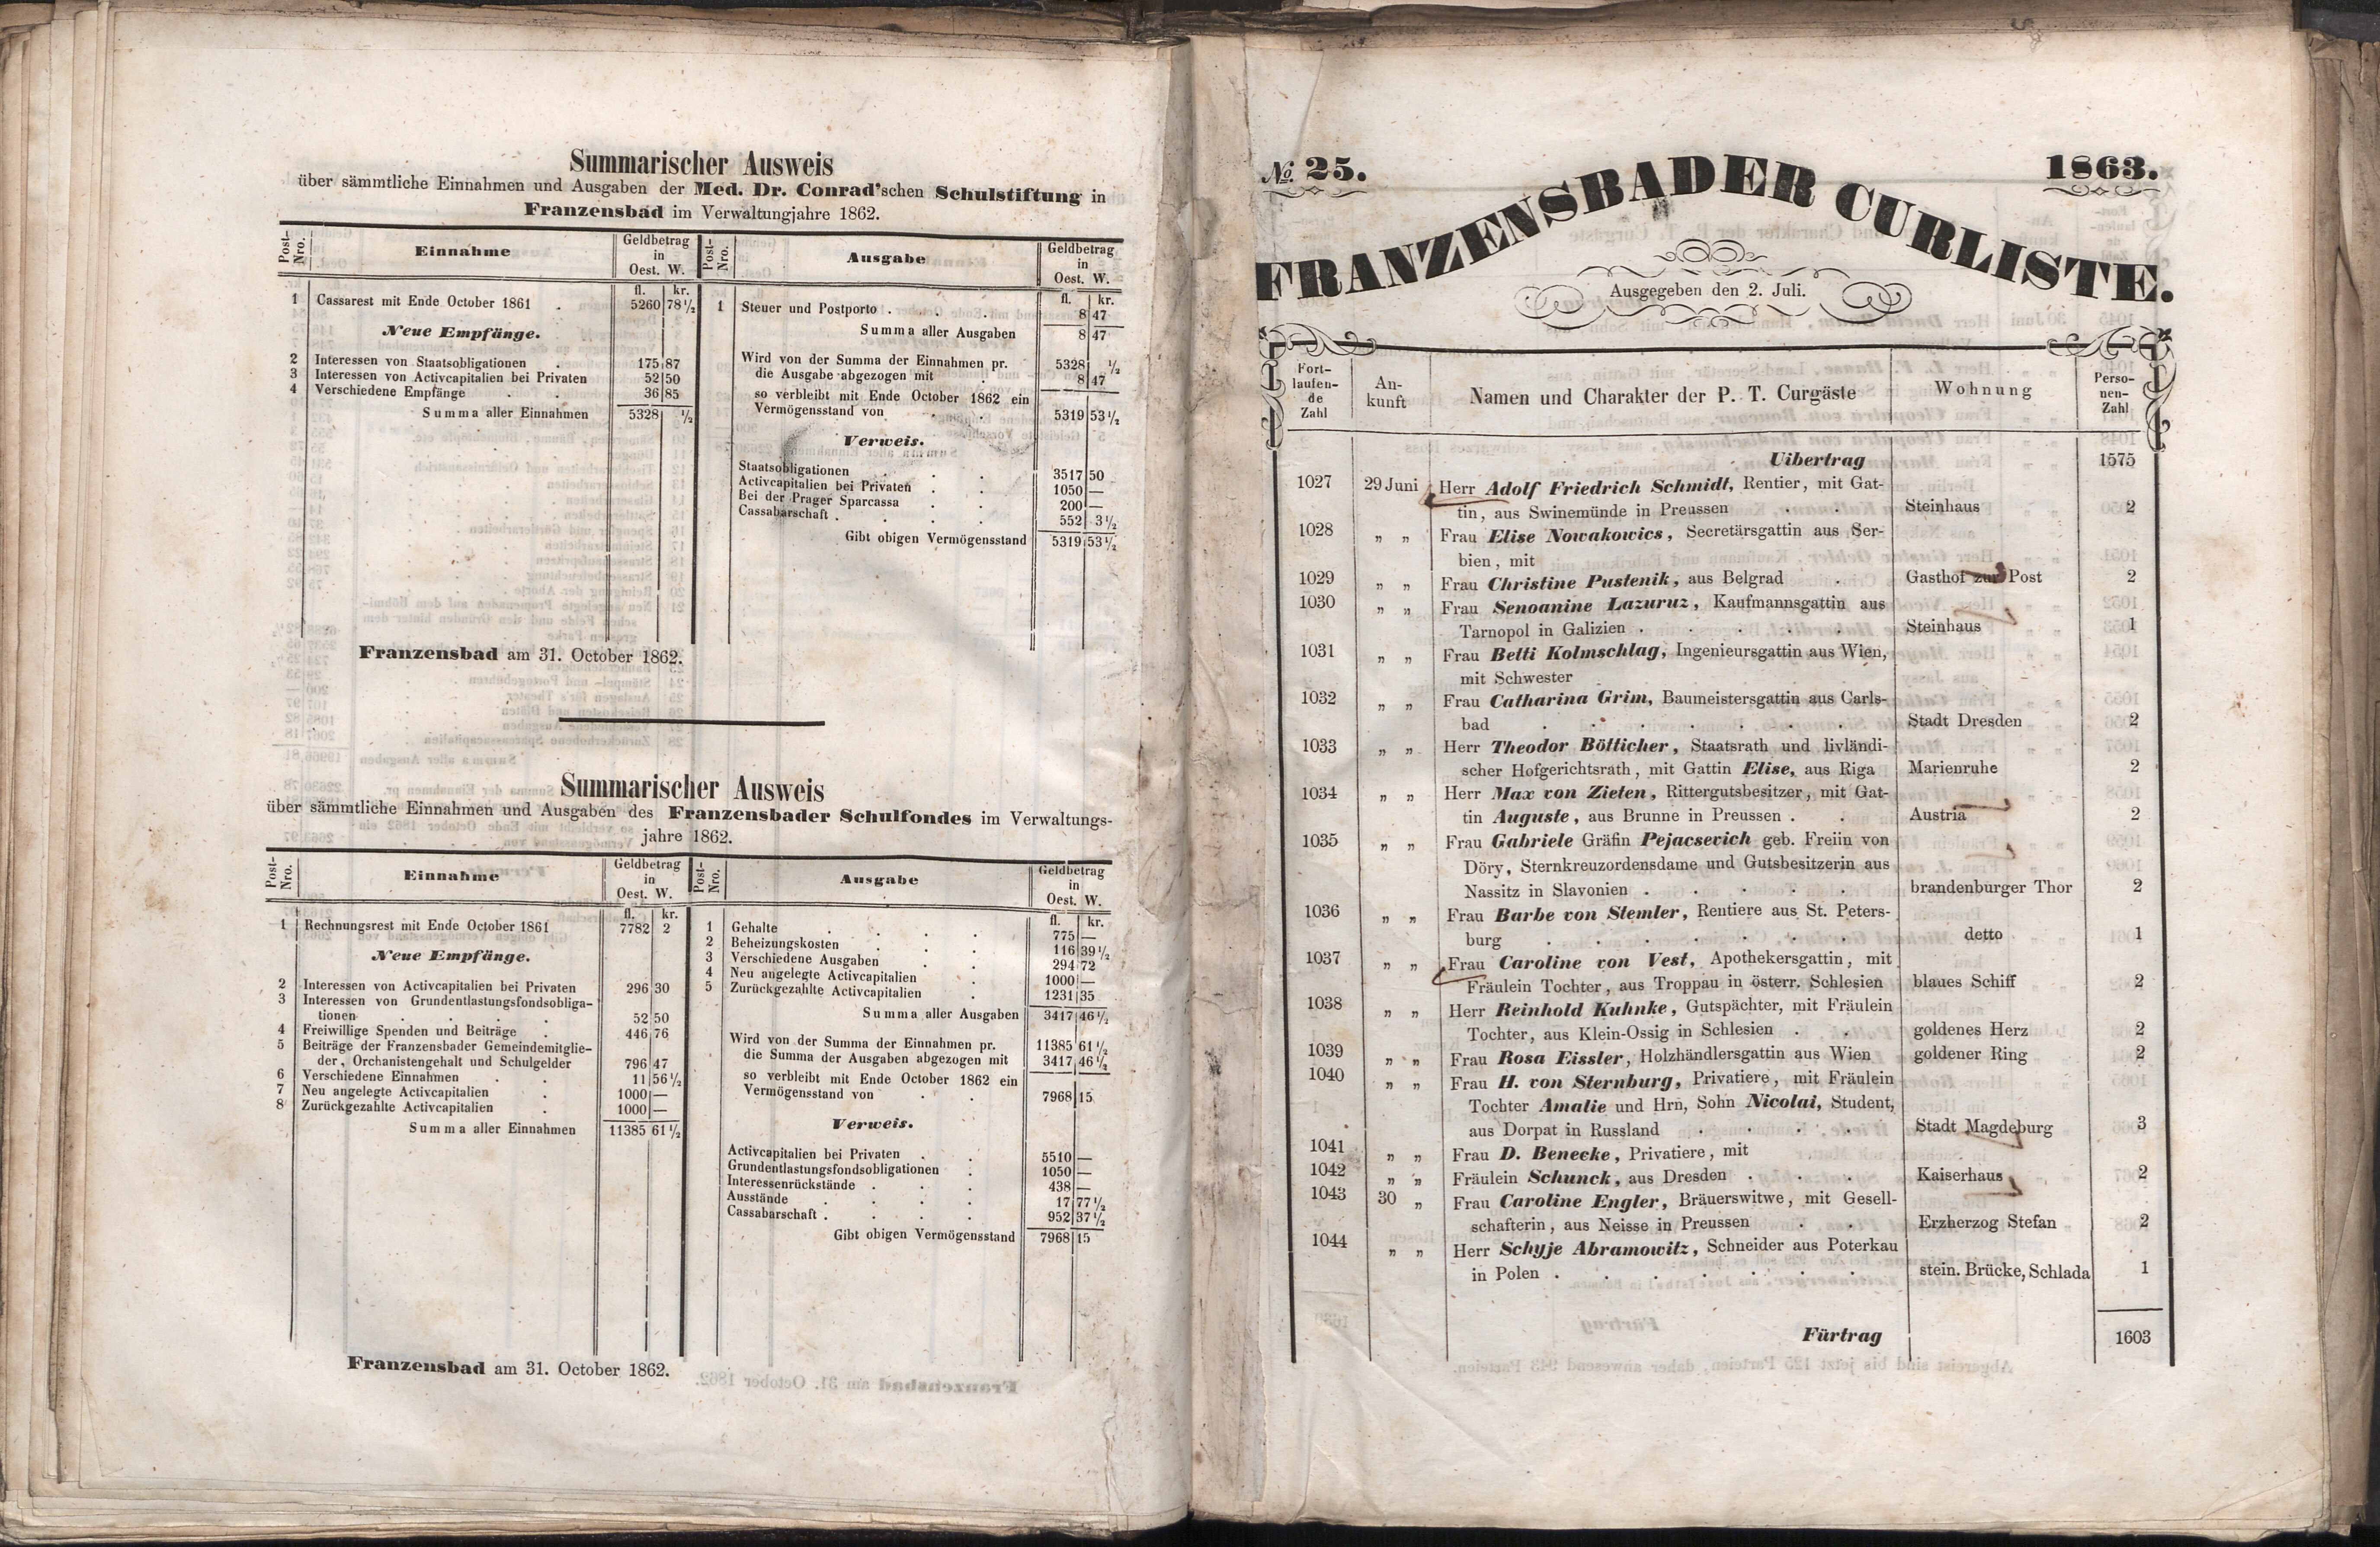 Summarischer Ausweis
über sämmtliche Einnahmen und Ausgaben der Med. Dr. Conrad'schen Schulstiftung in
Franzensbad im Verwaltungjahre 1862.
Post-Nro. Einnahme Geldbetrag in Oest. W. Post-Nro. Ausgabe Geldbetrag in Oest. W.
fl. kr. fl. kr.
1 Cassarest mit Ende October 1861 . 5260 78½
Neue Empfänge.
2 Interessen von Staatsobligationen . 175 87
3 Interessen von Activcapitalien bei Privaten 52 50
4 Verschiedene Empfänge . . 36 85
Summa aller Einnahmen 5328 ½
1 Steuer und Postporto . . . . 8 47
Summa aller Ausgaben 8 47
Wird von der Summa der Einnahmen pr. 5328 ½
die Ausgabe abgezogen mit . 8 47
so verbleibt mit Ende October 1862 ein
Vermögensstand von . . 5319 53½
Verweis.
Staatsobligationen . . 3517 50
Activcapitalien bei Privaten . . 1050 —
Bei der Prager Sparcassa . . 200 —
Cassabarschaft . . . . 552 3½
Gibt obigen Vermögensstand 5319 53½
Franzensbad am 31. October 1862.
Summarischer Ausweis
über sämmtliche Einnahmen und Ausgaben des Franzensbader Schulfondes im Verwaltungs-
jahre 1862.
Post-Nro. Einnahme Geldbetrag in Oest. W. Post-Nro. Ausgabe Geldbetrag in Oest. W.
fl. kr. fl. kr.
1 Rechnungsrest mit Ende October 1861 7782 2
Neue Empfänge.
2 Interessen von Activcapitalien bei Privaten 296 30
3 Interessen von Grundentlastungsfondsobliga-
tionen . . . . 52 50
4 Freiwillige Spenden und Beiträge . 446 76
5 Beiträge der Franzensbader Gemeindemitglie-
der, Orchanistengehalt und Schulgelder 796 47
6 Verschiedene Einnahmen . . 11 56½
7 Neu angelegte Activcapitalien . 1000 —
8 Zurückgezahlte Activcapitalien . 1000 —
Summa aller Einnahmen 11385 61½
1 Gehalte . . . . 775 —
2 Beheizungskosten . . . 116 39½
3 Verschiedene Ausgaben . . 294 72
4 Neu angelegte Activcapitalien . 1000 —
5 Zurückgezahlte Activcapitalien . 1231 35
Summa aller Ausgaben 3417 46½
Wird von der Summa der Einnahmen pr. 11385 61½
die Summa der Ausgaben abgezogen mit 3417 46½
so verbleibt mit Ende October 1862 ein
Vermögensstand von . . 7968 15
Verweis.
Activcapitalien bei Privaten . . 5510 —
Grundentlastungsfondsobligationen . 1050 —
Interessenrückstände . . . 438 —
Ausstände . . . . 17 77½
Cassabarschaft . . . . 952 37½
Gibt obigen Vermögensstand 7968 15
Franzensbad am 31. October 1862.
No. 25. 1863.
FRANZENSBADER CURLISTE.
Ausgegeben den 2. Juli.
Fort-laufen-de Zahl An-kunft Namen und Charakter der P. T. Curgäste Wohnung Perso-nen-Zahl
Uibertrag 1575
1027 29 Juni Herr Adolf Friedrich Schmidt, Rentier, mit Gat-
tin, aus Swinemünde in Preussen . . Steinhaus 2
1028 „ „ Frau Elise Nowakowics, Secretärsgattin aus Ser-
bien, mit
1029 „ „ Frau Christine Pustenik, aus Belgrad . Gasthof zur Post 2
1030 „ „ Frau Senoanine Lazuruz, Kaufmannsgattin aus
Tarnopol in Galizien . . . . . Steinhaus 1
1031 „ „ Frau Betti Kolmschlag, Ingenieursgattin aus Wien,
mit Schwester
1032 „ „ Frau Catharina Grim, Baumeistersgattin aus Carls-
bad . . . . . . . Stadt Dresden 2
1033 „ „ Herr Theodor Bötticher, Staatsrath und livländi-
scher Hofgerichtsrath, mit Gattin Elise, aus Riga Marienruhe 2
1034 „ „ Herr Max von Zieten, Rittergutsbesitzer, mit Gat-
tin Auguste, aus Brunne in Preussen . . Austria 2
1035 „ „ Frau Gabriele Gräfin Pejacsevich geb. Freiin von
Döry, Sternkreuzordensdame und Gutsbesitzerin aus
Nassitz in Slavonien . . . . . brandenburger Thor 2
1036 „ „ Frau Barbe von Stemler, Rentiere aus St. Peters-
burg . . . . . . . detto 1
1037 „ „ Frau Caroline von Vest, Apothekersgattin, mit
Fräulein Tochter, aus Troppau in österr. Schlesien blaues Schiff 2
1038 „ „ Herr Reinhold Kuhnke, Gutspächter, mit Fräulein
Tochter, aus Klein-Ossig in Schlesien . . goldenes Herz 2
1039 „ „ Frau Rosa Eissler, Holzhändlersgattin aus Wien goldener Ring 2
1040 „ „ Frau H. von Sternburg, Privatiere, mit Fräulein
Tochter Amalie und Hrn, Sohn Nicolai, Student,
aus Dorpat in Russland . . . . Stadt Magdeburg 3
1041 „ „ Frau D. Benecke, Privatiere, mit
1042 „ „ Fräulein Schunck, aus Dresden . . . Kaiserhaus 2
1043 30 „ Frau Caroline Engler, Bräuerswitwe, mit Gesell-
schafterin, aus Neisse in Preussen . . Erzherzog Stefan 2
1044 „ „ Herr Schyje Abramowitz, Schneider aus Poterkau
in Polen . . . . . . . stein. Brücke, Schlada 1
Fürtrag 1603